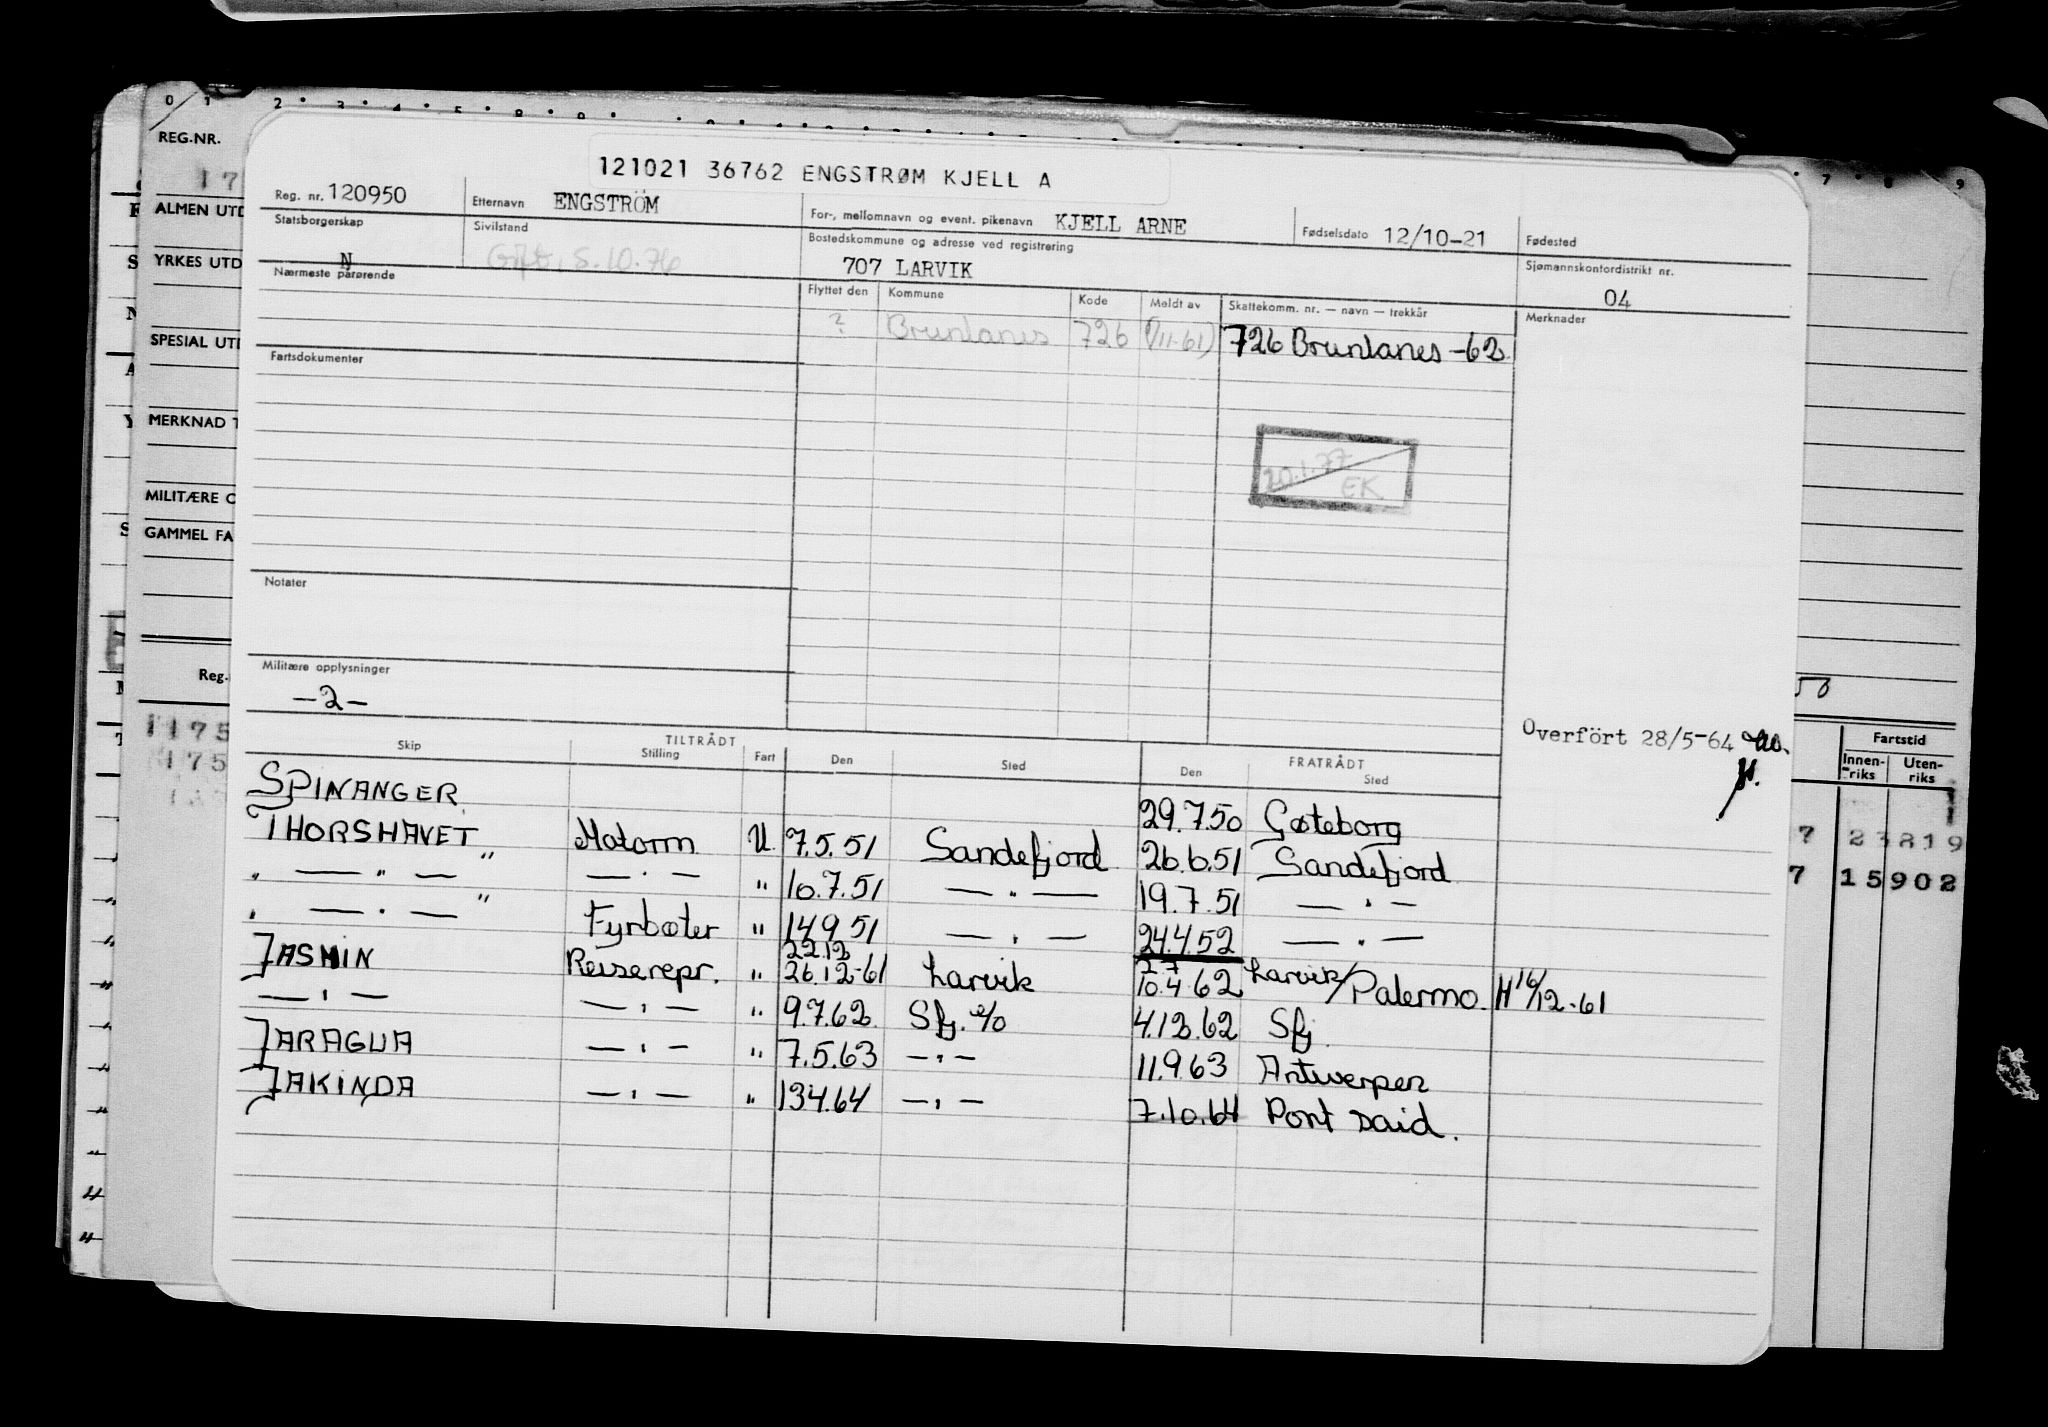 0 1 2 3 4 5
REG.NR.
17
ALMEN UTD
YRKES UTD
SPECIAL UTD
MERKNAD T
MILITÆRE O
GAMMEL FA
Reg.
175
175
121021 36762 ENGSTRØM KJELL A
Reg. nr. 120950 Etternavn ENGSTRÖM For-, mellomnavn og event. pikenavn KJELL ARNE Fødselsdato 12/10-21 Fødested
Statsborgerskap N Sivilstand Gift, 5.10.76 Bostedskommune og adresse ved registrering 707 LARVIK Sjømannskontordistrikt nr. 04
Nærmeste pårørende Flyttet den Kommune Kode Meldt av Skattekomm. nr. — navn — trekkår Merknader
? Brunlanes 726 (1/11-61) 726 Brunlanes -62
Fartsdokumenter
20.1.77
EK
Notater
Militære opplysninger
-2-
Overført 28/5-64
TILTRÅDT FRATRÅDT
Skip Stilling Fart Den Sted Den Sted
SPINANGER 29.7.50 Gøteborg
THORSHAVET Motorm U 7.5.51 Sandefjord 26.6.51 Sandefjord
" — " — " — " — " 10.7.51 — " — 19.7.51 — " —
" — " — " Fyrbøter " 14.9.51 — " — 24.4.52 — " —
JASMIN Reiserepr. " 22.12 26.12-61 Larvik 2.7 10.4.62 Larvik/Palermo. H 16/12-61
— " — — " — " 9.7.62 Sfj. o/o 4.12.62 Sfj
JARAGUA — " — " 7.5.63 — " — 11.9.63 Antwerpen
JAKINDA — " — " 13.4.64 — " — 7.10.64 Port Said.
7 8 9
Fartstid
Innen-riks Uten-riks
7 23819
7 15902